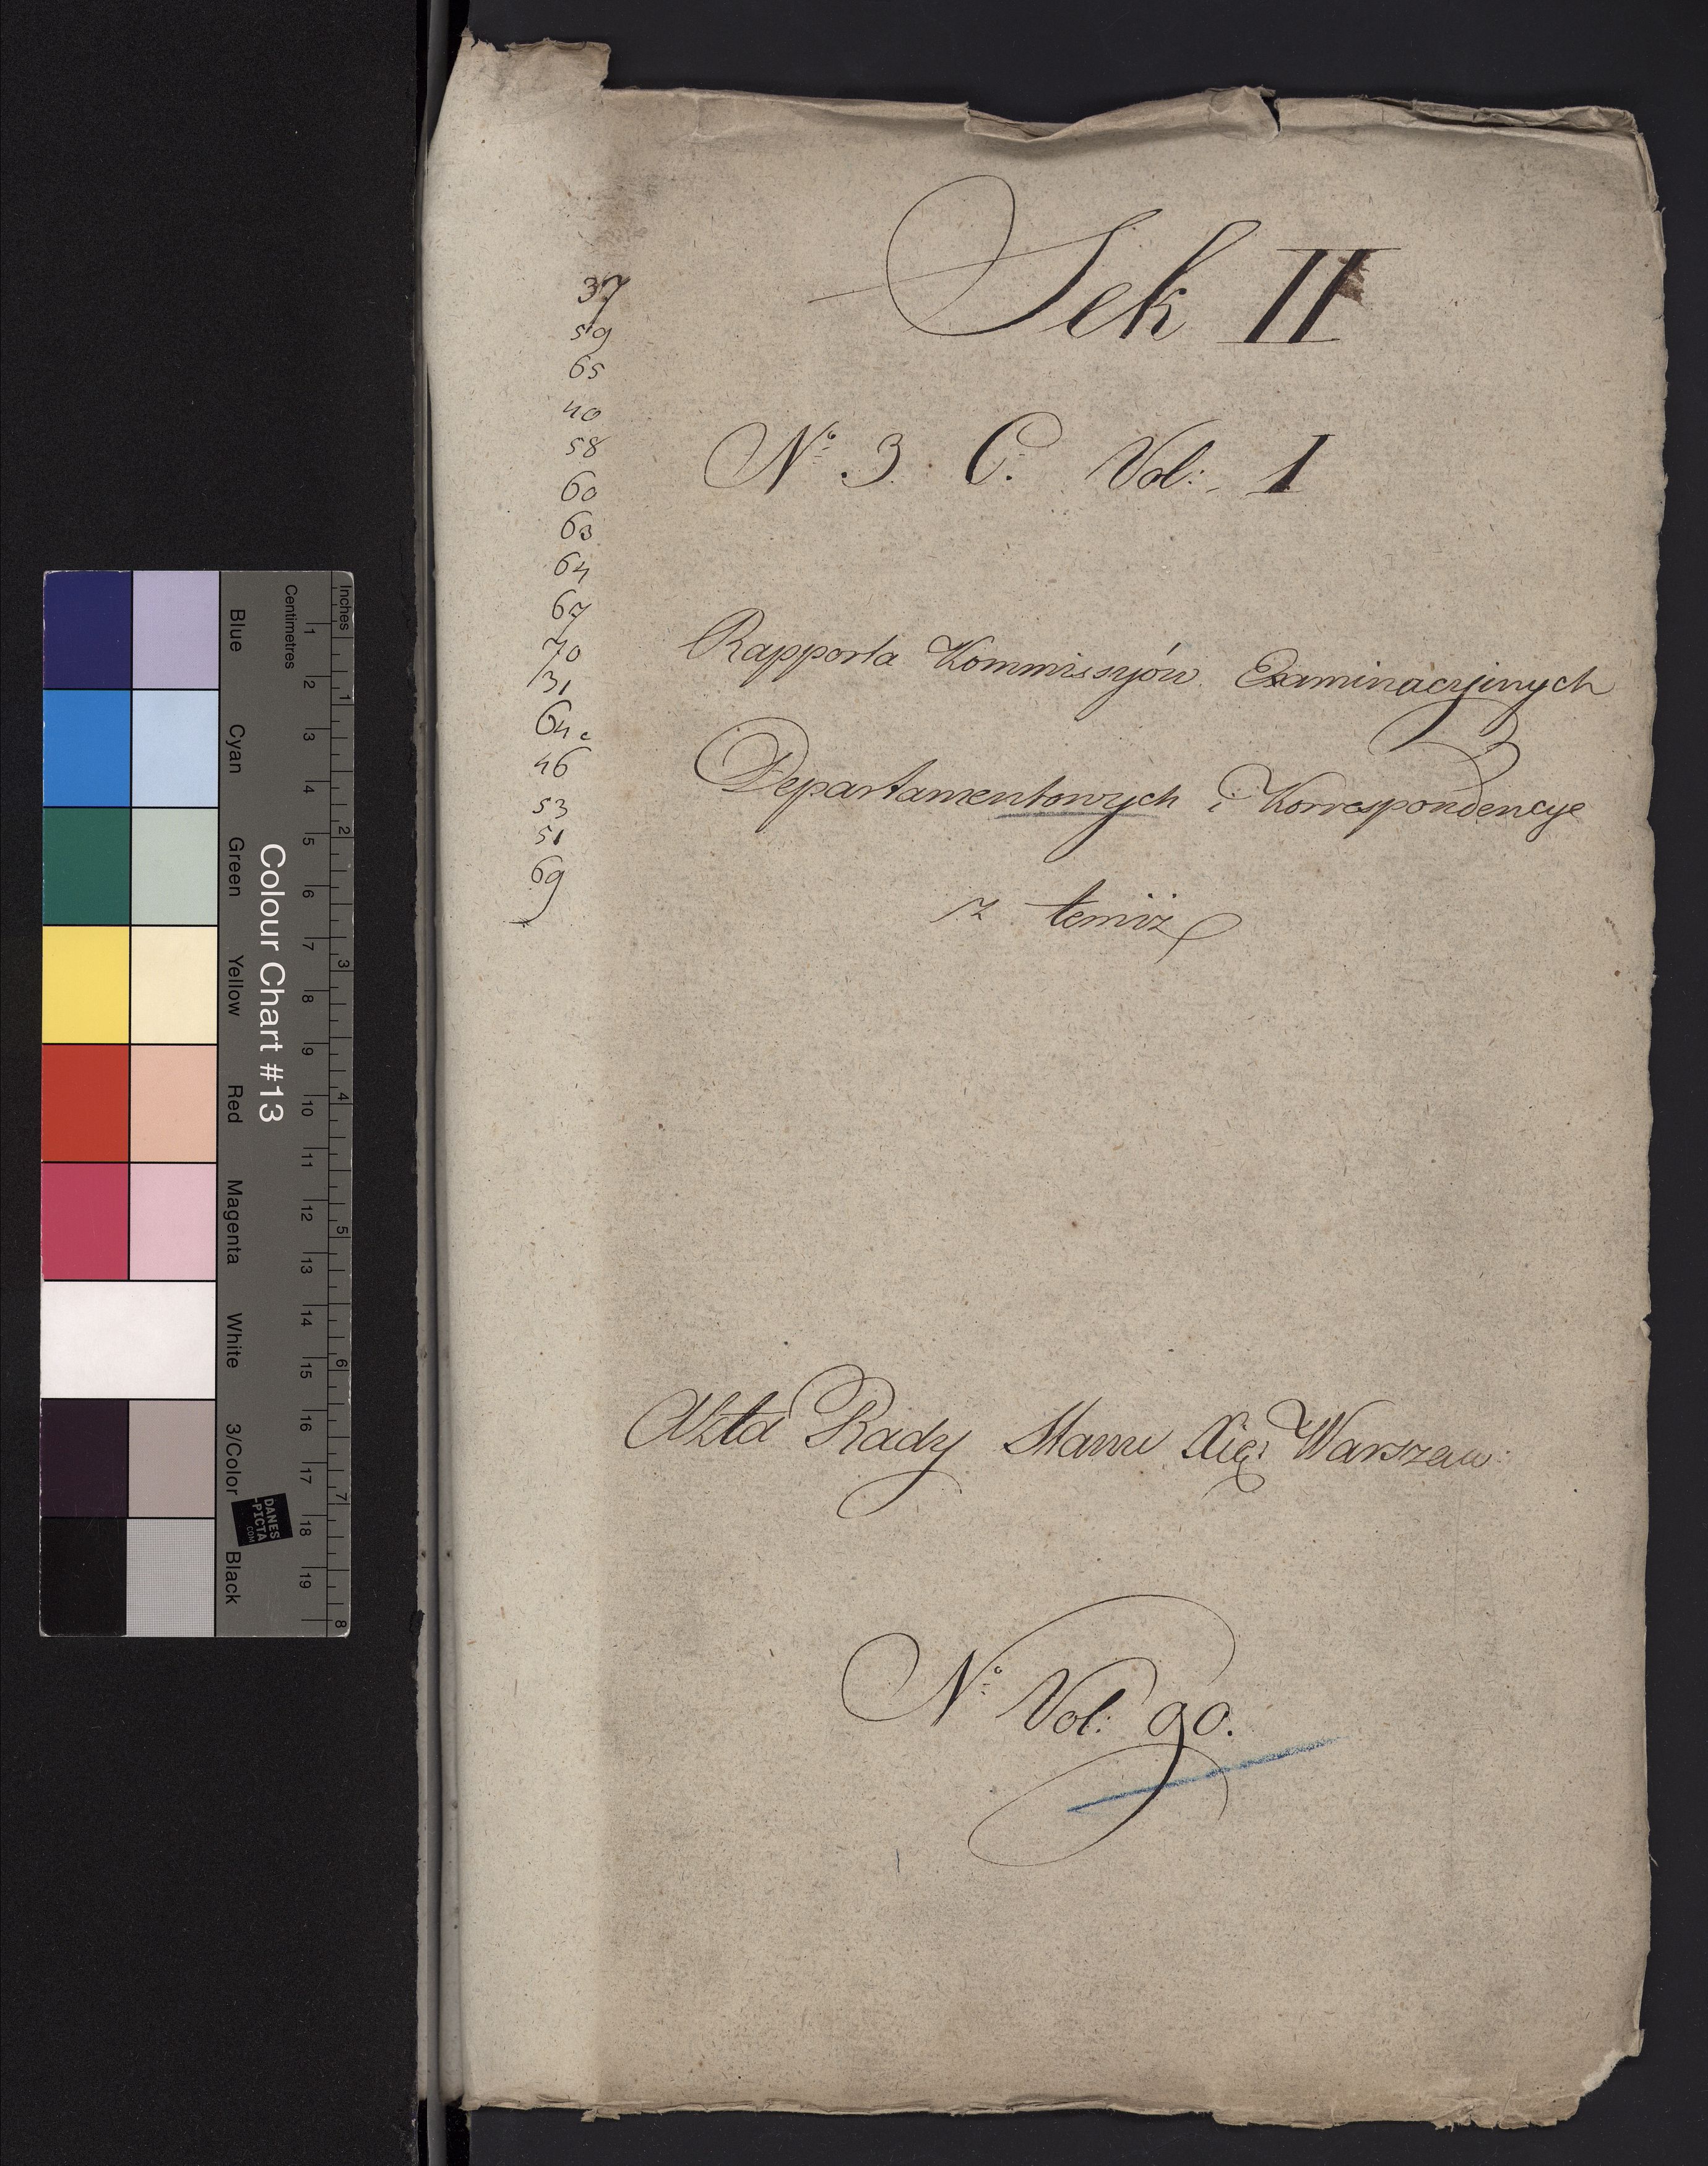 Sek II
Nº 3. C. Vol: 1
Rapporta Kommissyów Examinacyinych
Departamentowych i Korrespondencye
z temiż
Akta Rady Stanu Xięs Warszaw:
Nº Vol: 90.
37
59
65
40
58
60
63
64
67
70
31
64 c
46
53
51
69
Colour Chart #13
Blue
Cyan
Green
Yellow
Red
Magenta
White
3/Color
Black
Centimetres
1 2 3 4 5 6 7 8 9 10 11 12 13 14 15 16 17 18 19
Inches
1 2 3 4 5 6 7 8
DANES
-PICTA
.COM